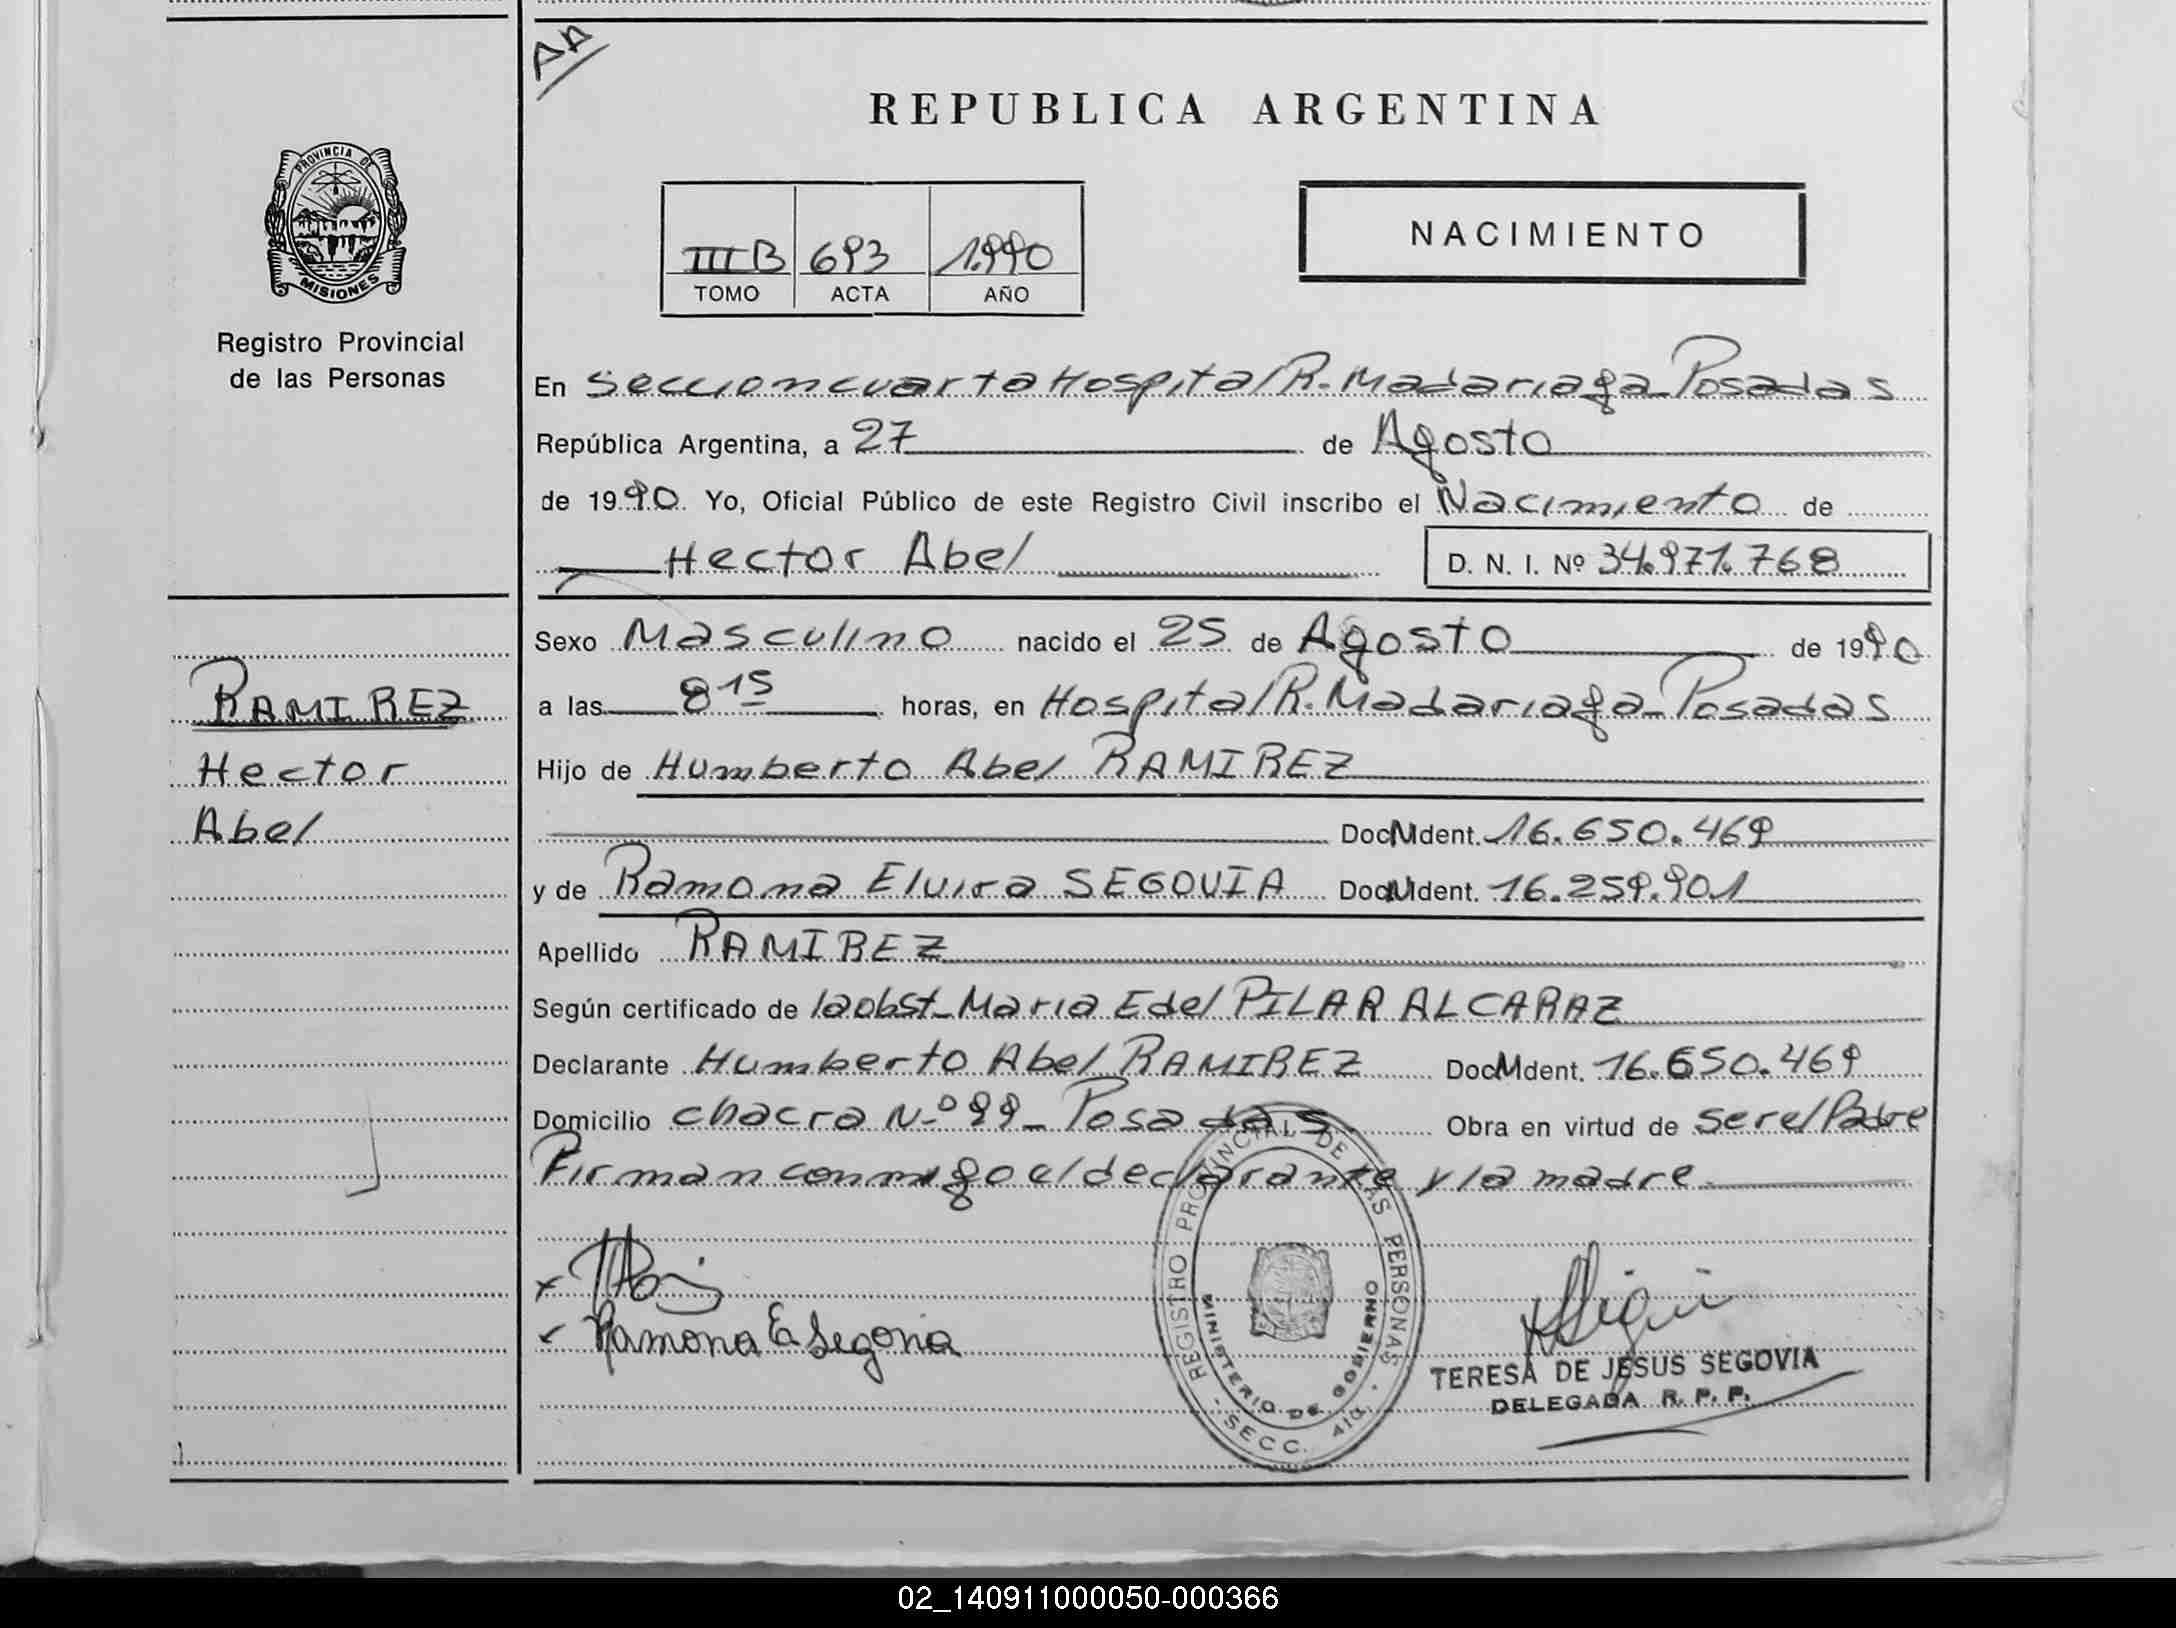 AA
REPUBLICA ARGENTINA
PROVINCIA DE MISIONES
Registro Provincial
de las Personas
III B 693 1.990
TOMO ACTA AÑO
NACIMIENTO
En Seccion cuarta Hospital R. Madariaga - Posadas
República Argentina, a 27 de Agosto
de 1990. Yo, Oficial Público de este Registro Civil inscribo el Nacimiento de
Hector Abel D. N. I. Nº 34.971.768
Sexo Masculino nacido el 25 de Agosto de 1990
a las 8 15 horas, en Hospital R. Madariaga - Posadas
Hijo de Humberto Abel RAMIREZ
Doc. Ident. 16.650.469
y de Ramona Elvira SEGOVIA Doc. Ident. 16.259.901
Apellido RAMIREZ
Según certificado de la obst - Maria Edel PILAR ALCARAZ
Declarante Humberto Abel RAMIREZ Doc. Ident. 16.650.469
Domicilio chacra N.º 99 - Posadas. Obra en virtud de ser el Padre
Firman conmigo el declarante y la madre
RAMIREZ
Hector
Abel
x
x Ramona E Segovia
REGISTRO PROVINCIAL DE LAS PERSONAS
MINISTERIO DE GOBIERNO
- SECC. 4ta. -
TERESA DE JESUS SEGOVIA
DELEGADA R. P. P.
02_140911000050-000366